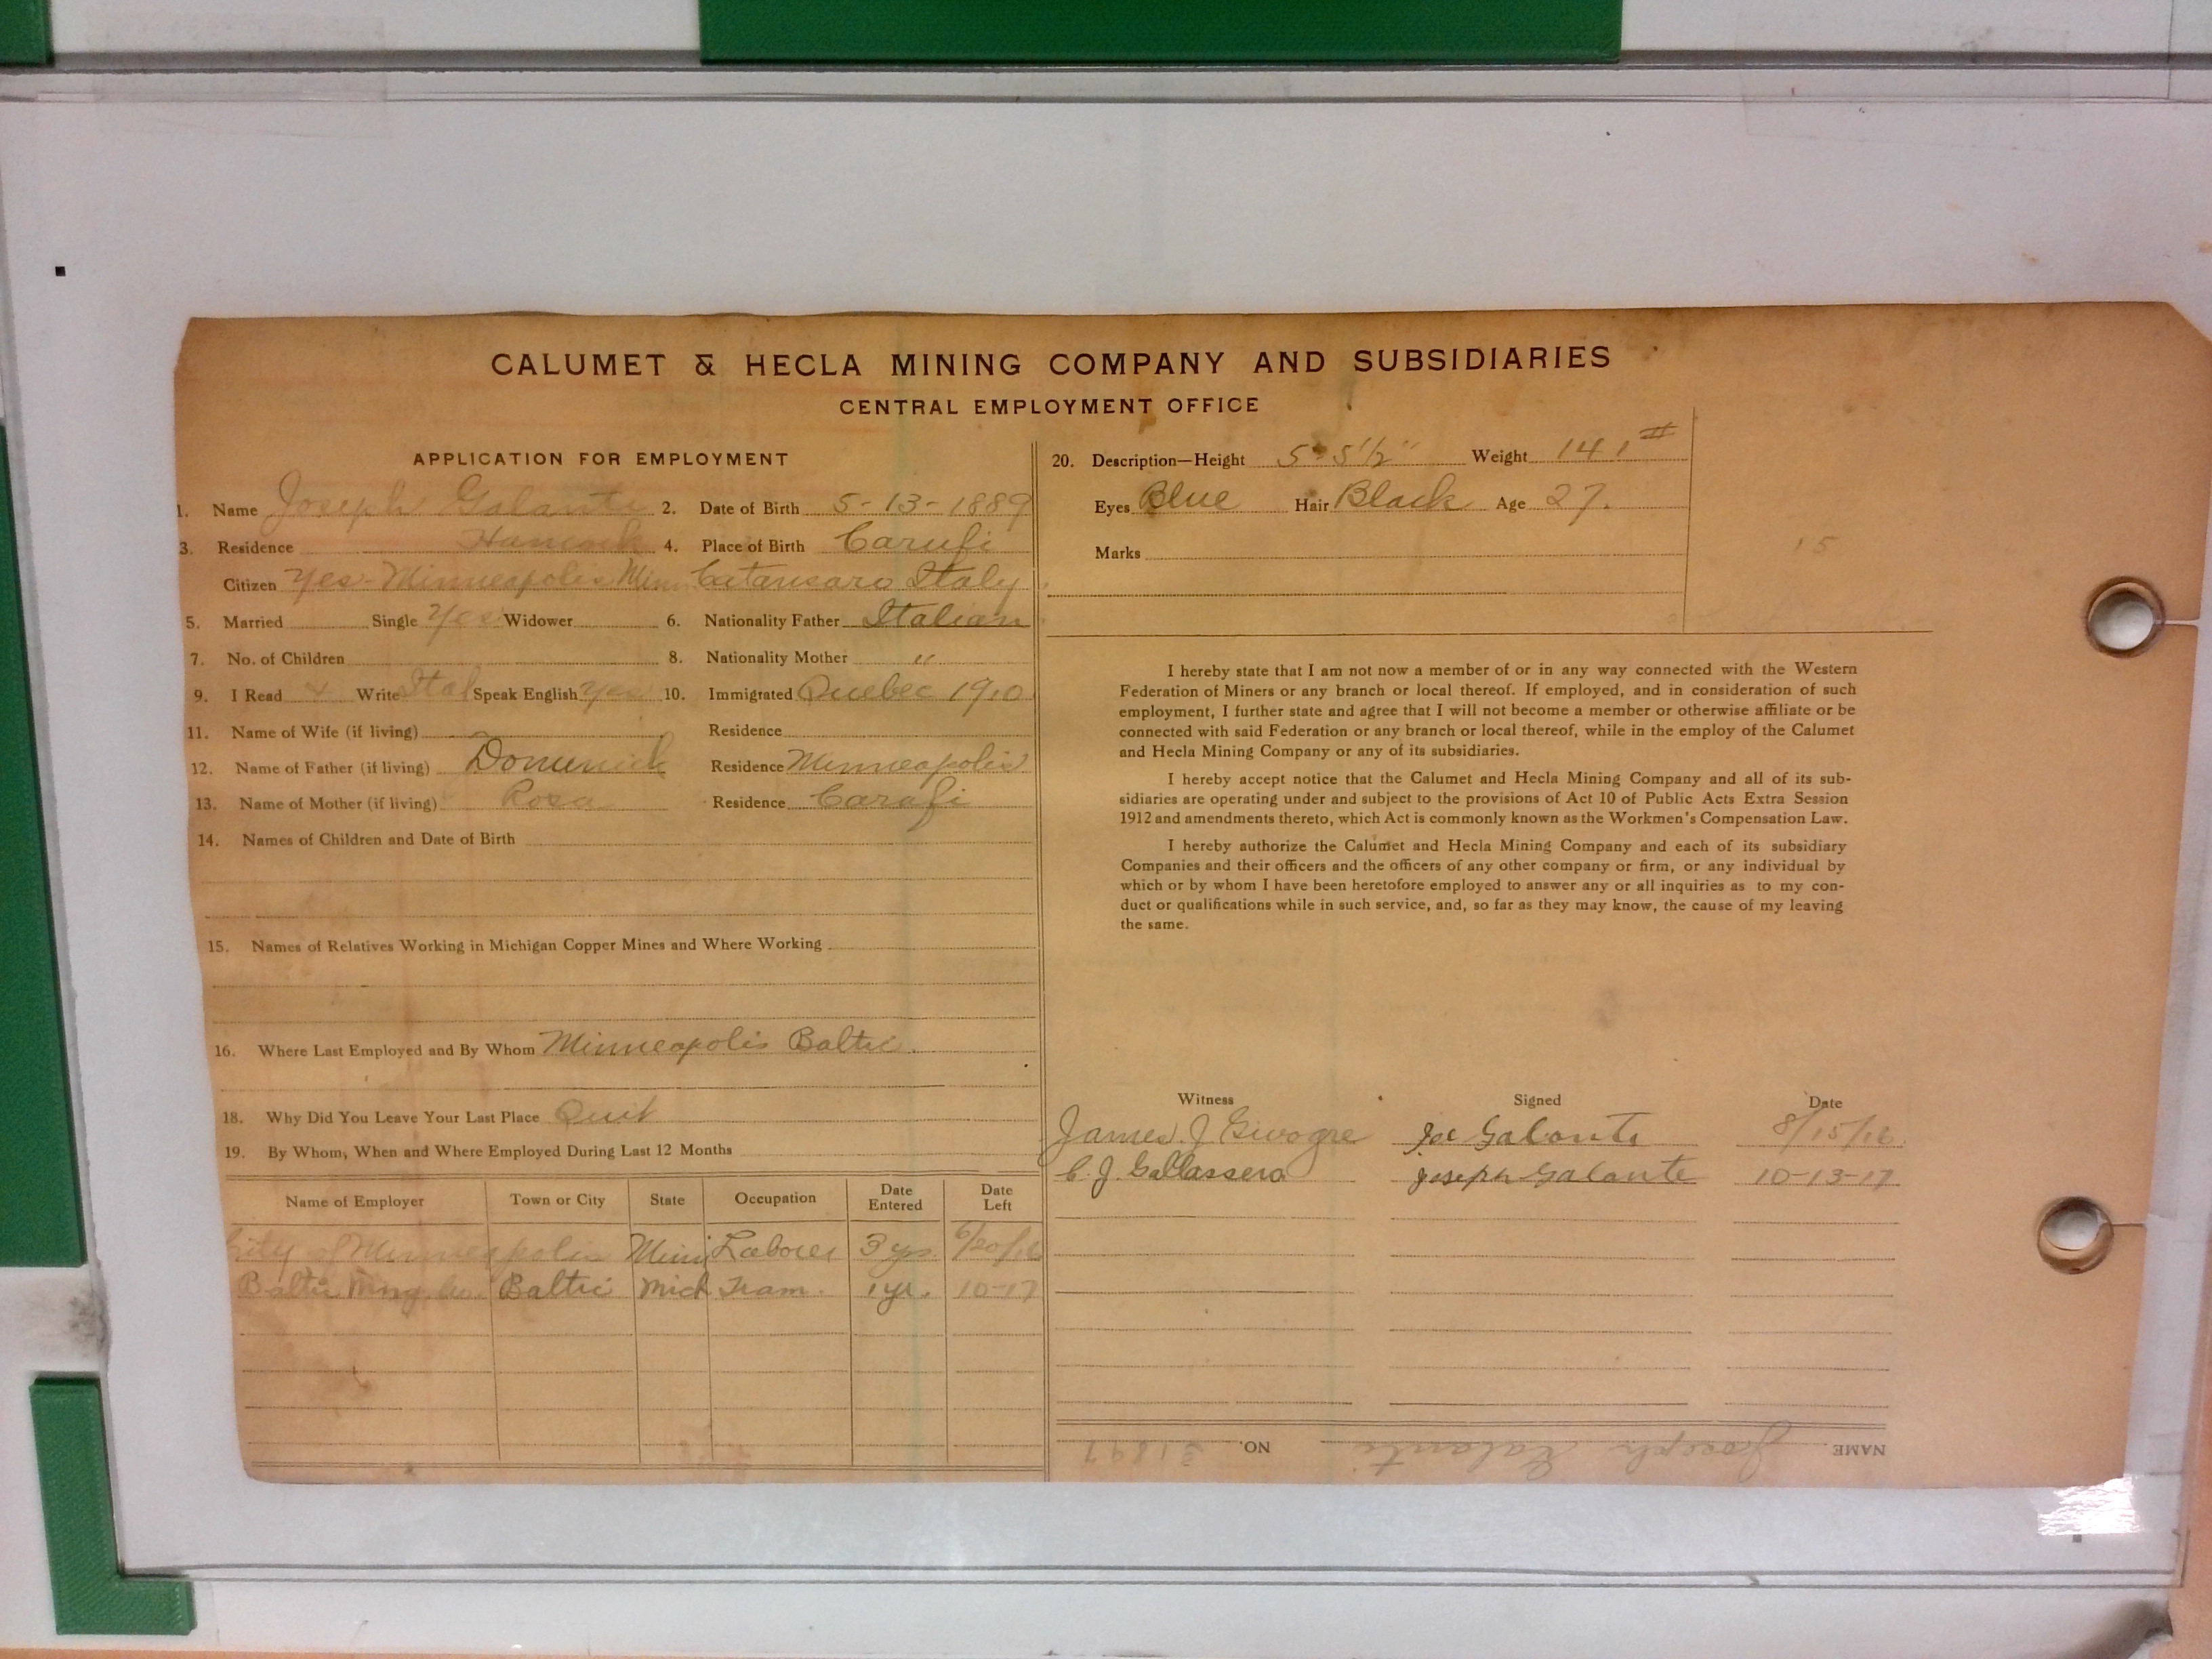 CALUMET & HECLA MINING COMPANY AND SUBSIDIARIES
CENTRAL EMPLOYMENT OFFICE
APPLICATION FOR EMPLOYMENT
1. Name Joseph Galante 2. Date of Birth 5-13-1889
3. Residence Hancock 4. Place of Birth Carufi
Citizen Yes - Minneapolis Minn Catansaro Italy
5. Married Single Yes Widower 6. Nationality Father Italian
7. No. of Children 8. Nationality Mother "
9. I Read Write Ital Speak English yes 10. Immigrated Quebec 1910
11. Name of Wife (if living) Residence
12. Name of Father (if living) Domenick Residence Minneapolis
13. Name of Mother (if living) Rosa Residence Carafi
14. Names of Children and Date of Birth
15. Names of Relatives Working in Michigan Copper Mines and Where Working
16. Where Last Employed and By Whom Minneapolis Baltic.
18. Why Did You Leave Your Last Place Quit
19. By Whom, When and Where Employed During Last 12 Months
Name of Employer Town or City State Occupation Date Entered Date Left
City of Minneapolis Minn Laborer 3 yrs. 6/20/16
Baltic Mng Co. Baltic Mich Tram. 1 yr. 10-17
20. Description—Height 5' 5 1/2" Weight 141 #
Eyes Blue Hair Black Age 27.
Marks
15
I hereby state that I am not now a member of or in any way connected with the Western
Federation of Miners or any branch or local thereof. If employed, and in consideration of such
employment, I further state and agree that I will not become a member or otherwise affiliate or be
connected with said Federation or any branch or local thereof, while in the employ of the Calumet
and Hecla Mining Company or any of its subsidiaries.
I hereby accept notice that the Calumet and Hecla Mining Company and all of its sub-
sidiaries are operating under and subject to the provisions of Act 10 of Public Acts Extra Session
1912 and amendments thereto, which Act is commonly known as the Workmen's Compensation Law.
I hereby authorize the Calumet and Hecla Mining Company and each of its subsidiary
Companies and their officers and the officers of any other company or firm, or any individual by
which or by whom I have been heretofore employed to answer any or all inquiries as to my con-
duct or qualifications while in such service, and, so far as they may know, the cause of my leaving
the same.
Witness Signed Date
James J Givogre Joe Galante 8/15/16
C. J. Gallassero Joseph Galante 10-13-17
NAME Joseph Galante NO. 31897